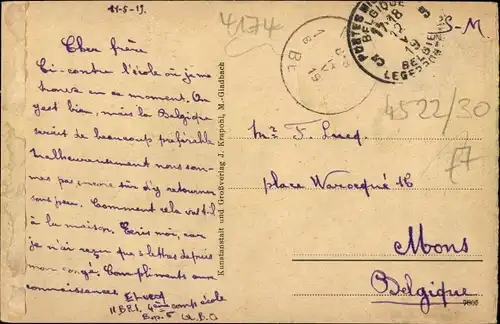 11-5-19.
4174
S.-M.
Cher frère
Ci-contre l'école où je me
trouve en ce moment. On
y est bien, mais la Belgique
serait de beaucoup préférable
Malheureusement nous som-
mes pas encore sûr d'y retourner
sous peu. Comment cela va-t-il
à la maison. Écris-moi, car
je n'ai reçu que 2 lettres depuis
mon congé. Compliments aux
connaissances
4ème comp école
Kunstanstalt und Großverlag J. Krapohl, M.-Gladbach
POSTES MILITAIRES
BELGIQUE
11-18
12
V
19
BELGIE
LEGERPOSTERIJ
4522/30
77
Mr F. Lucq.
place Warocqué 16
Mons
Belgique